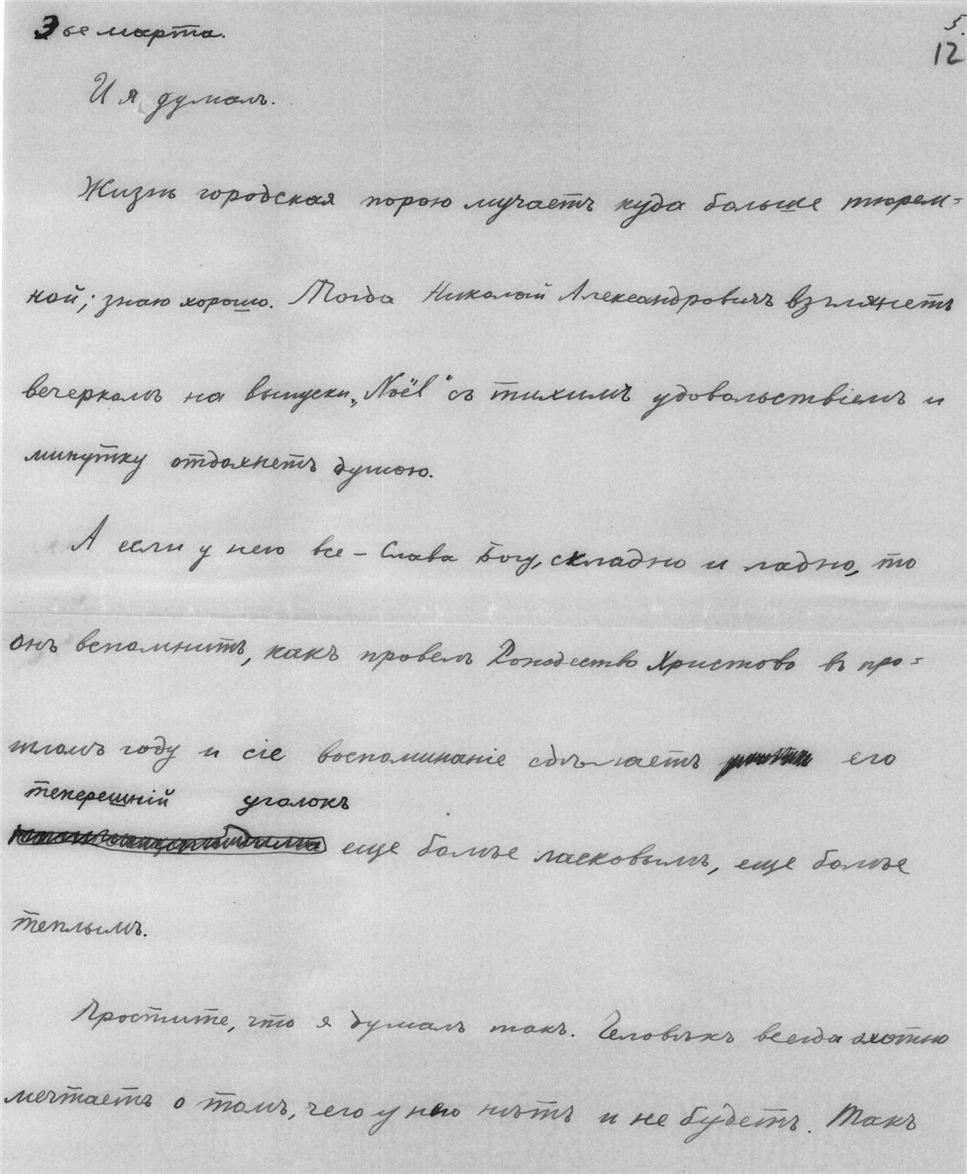 3ье марта.
5.
12
И я думалъ.
Жизнь городская порою мучаетъ куда больше тюрем=
ной; знаю хорошо. Тогда Николай Александровичъ взглянетъ
вечеркомъ на выпуски „Noël“ съ тихимъ удовольствіемъ и
минутку отдохнетъ душою.
А если у него все – Слава Богу, складно и ладно, то
онъ вспомнитъ, какъ провелъ Рождество Христово въ про=
шломъ году и сіе воспоминаніе сдѣлаетъ его
теперешній уголокъ
еще болѣе ласковымъ, еще болѣе
теплымъ.
Простите, что я думалъ такъ. Человѣкъ всегда охотно
мечтаетъ о томъ, чего у него нѣтъ и не будетъ. Такъ